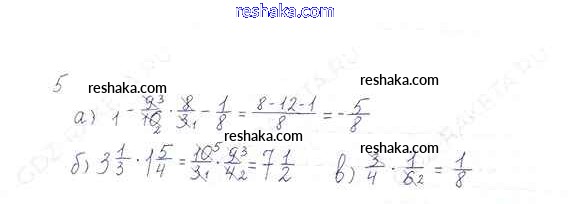 reshaka.com
5
reshaka.com reshaka.com
а) 1 - 9³/10₂ · 8/3₁ - 1/8 = (8-12-1)/8 = -5/8
reshaka.com reshaka.com
б) 3 1/3 · 1 5/4 = 10⁵/3₁ · 9³/4₂ = 7 1/2 в) 3/4 · 1/6₂ = 1/8
reshaka.com